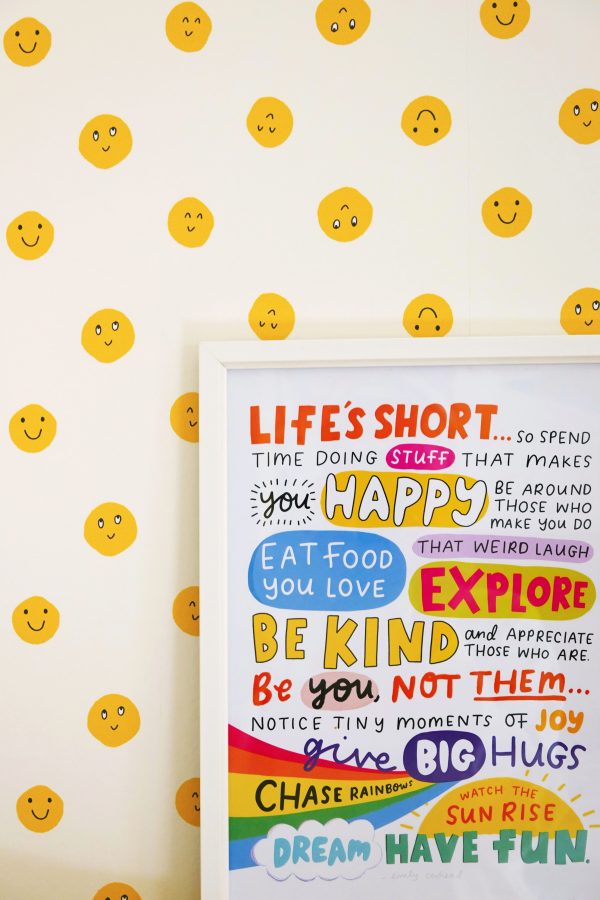 LIFE'S SHORT... SO SPEND
TIME DOING STUFF THAT MAKES
you HAPPY BE AROUND
THOSE WHO
MAKE YOU DO
EAT FOOD
YOU LOVE
THAT WEIRD LAUGH
EXPLORE
BE KIND and APPRECIATE
THOSE WHO ARE.
Be you, NOT THEM...
NOTICE TINY MOMENTS OF JOY
give BIG HUGS
CHASE RAINBOWS
WATCH THE
SUN RISE
DREAM HAVE FUN.